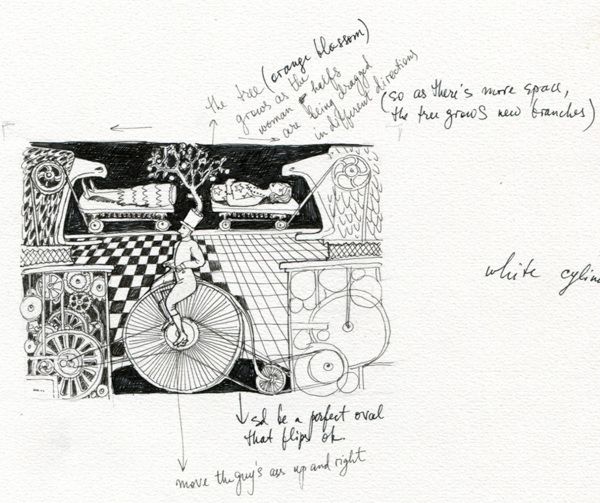 the tree (orange blossom)
grows as the
woman halfs
are being dragged
in different directions
(so as there's more space,
the tree grows new branches)
white cylin
sd be a perfect oval
that flips ok.
move the guy's ass up and right